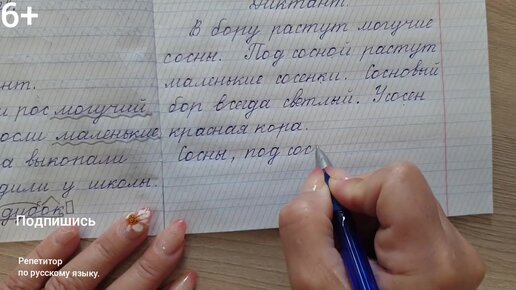 6+
Диктант.
В бору растут могучие
сосны. Под сосной растут
маленькие сосенки. Сосновый
бор всегда светлый. Усосен
красная кора.
Сосны, под сос
нт.
и рос могучий
маленькие
а выкопали
дили у школы.
дубок
Подпишись
Репетитор
по русскому языку.